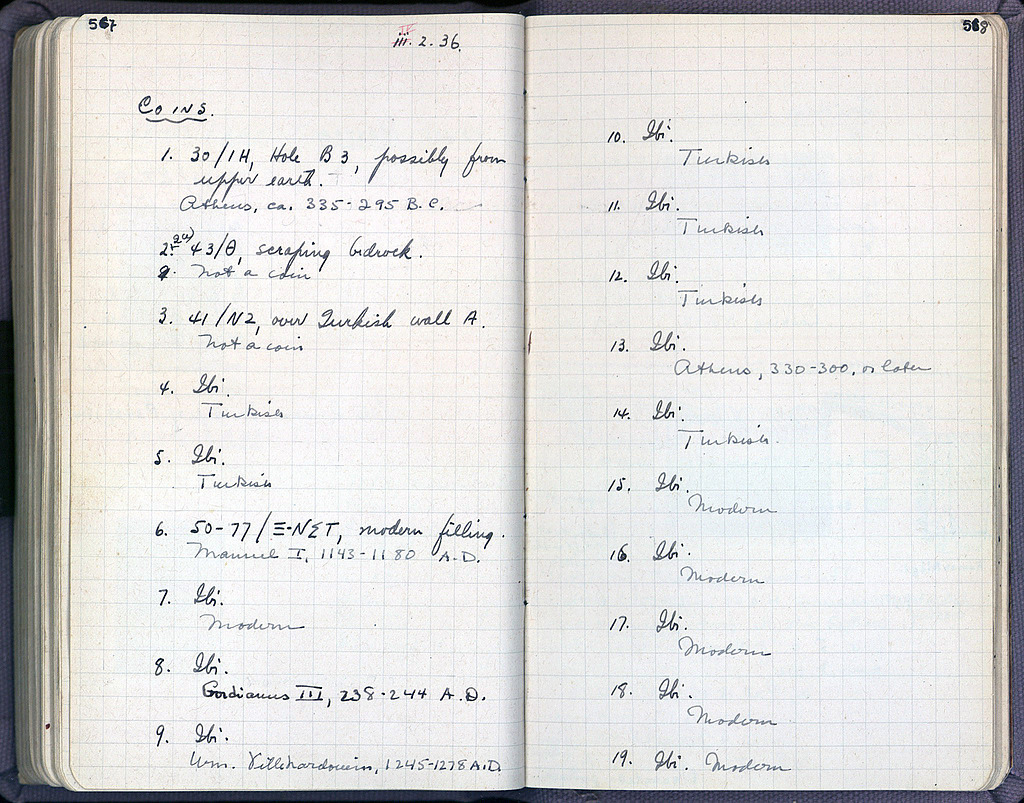 567
iii. 2. 36.
COINS.
1. 30/IH, Hole B 3, possibly from
upper earth.
Athens, ca. 335-295 B.C.
2. 43/Θ, scraping bedrock.
Not a coin
3. 41/NZ, over Turkish wall A.
Not a coin
4. Ibi.
Turkish
5. Ibi.
Turkish
6. 50-77/Ξ-NΣT, modern filling.
Manuel I, 1143-1180 A.D.
7. Ibi.
Modern
8. Ibi.
Gordianus III, 238-244 A.D.
9. Ibi.
Wm. Villehardouin, 1245-1278 A.D.
568
10. Ibi.
Turkish
11. Ibi.
Turkish
12. Ibi.
Turkish
13. Ibi.
Athens, 330-300, or later
14. Ibi.
Turkish.
15. Ibi.
Modern
16. Ibi.
Modern
17. Ibi.
Modern
18. Ibi.
Modern
19. Ibi. Modern